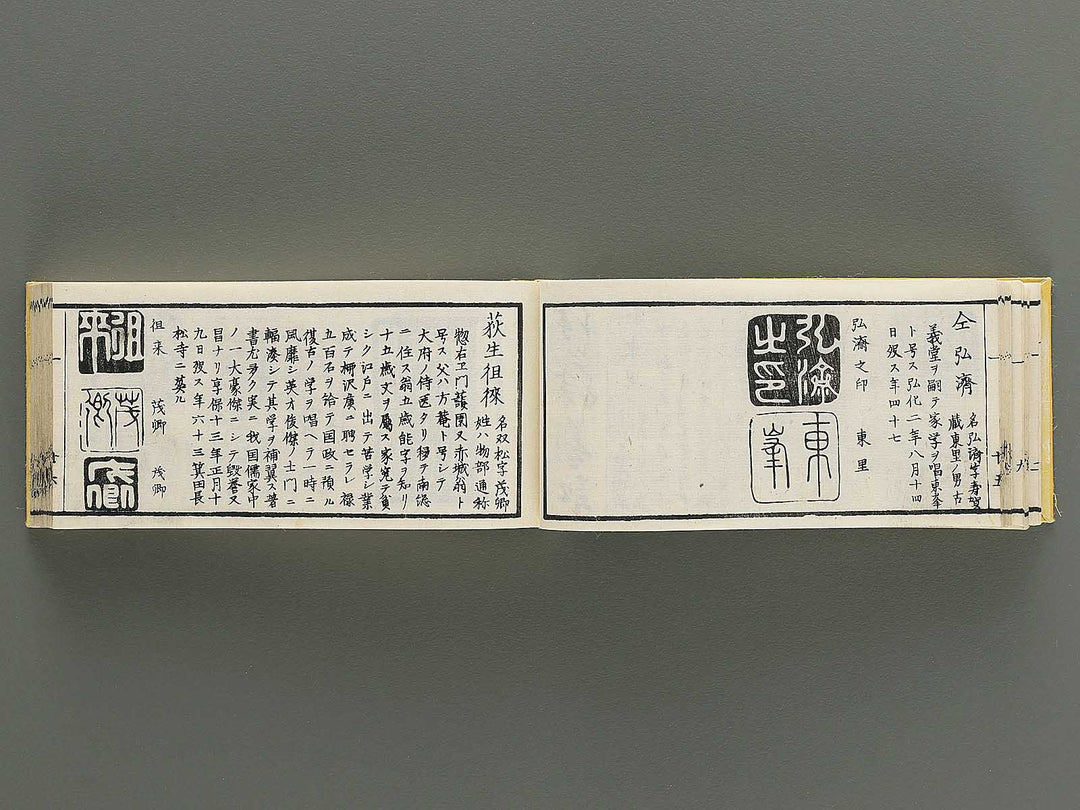 仝弘濟
名弘濟字寿賀
蔵東里ノ男古
義堂ヲ嗣テ家学ヲ唱東峯
ト号ス弘化二年八月十四
日歿ス年四十七
弘濟之印
東里
弘濟之印
東峯
荻生徂徠
名双松字茂卿
姓ハ物部通称
惣右ヱ門蘐園又赤城翁ト
号ス父ハ方菴ト号シテ
大府ノ侍医タリ移テ南総
ニ住ス翁五歳能字ヲ知リ
十五歳文ヲ属ス家寛テ貧
シク江戸ニ出テ苦学シ業
成テ柳沢侯ニ聘セラレ禄
五百石ヲ給テ国政ニ預ル
復古ノ学ヲ唱ヘ一時ニ
風靡シ英才俊傑ノ士門ニ
輻湊シテ其学ヲ補翼ス著
書尤ヲク実ニ我国儒家中
ノ一大豪傑ニシテ毀誉又
昌ナリ享保十三年正月十
九日歿ス年六十三箕田長
松寺ニ葬ル
徂来
茂卿
茂卿
徂来
茂卿